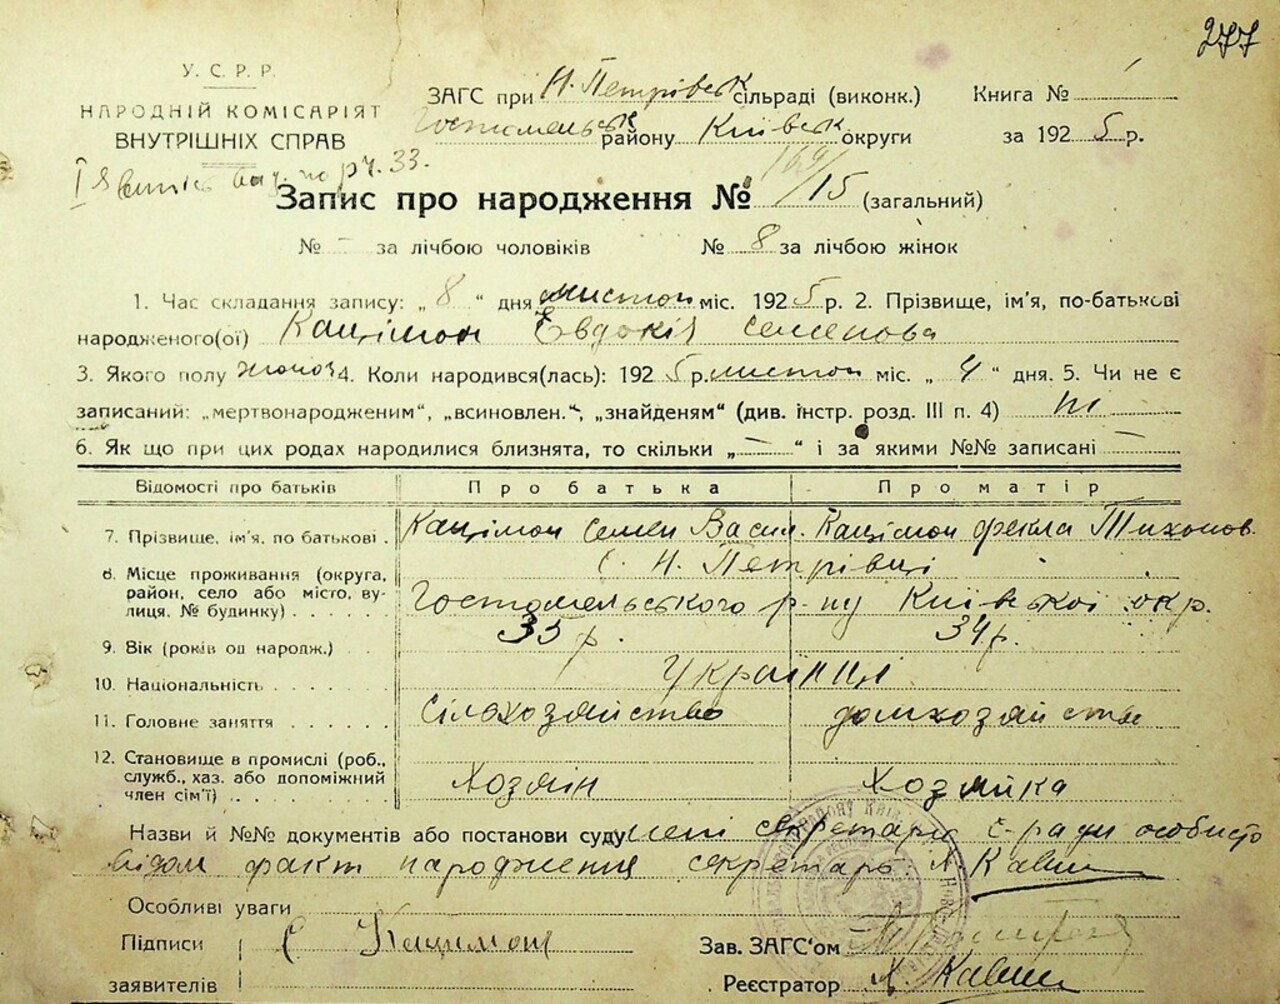 277
У. С. Р. Р.
НАРОДНІЙ КОМІСАРІЯТ
ВНУТРІШНІХ СПРАВ
ЗАГС при Н. Петрівськ сільраді (виконк.)
Гостомельськ району Київськ округи
Книга №
за 1925 р.
Запис про народження № 169/15 (загальний)
№ – за лічбою чоловіків № 8 за лічбою жінок
1. Час складання запису: „ 8 “ дня листоп міс. 1925 р. 2. Прізвище, ім'я, по-батькові
народженого(ої) Кацімон Евдокія Семенова
3. Якого полу жіноч 4. Коли народився(лась): 1925 р. листоп міс. „ 4 “ дня. 5. Чи не є
записаний: „мертвонародженим“, „всиновлен.“, „знайденям“ (див. інстр. розд. III п. 4) ні
6. Як що при цих родах народилися близнята, то скільки „ – “ і за якими №№ записані –
Відомості про батьків Про батька Про матір
7. Прізвище, ім'я, по батькові . Кацімон Семен Васил. Кацімон Фекла Тихонов.
8. Місце проживання (округа, район, село або місто, вулиця, № будинку) . . . . с. Н. Петрівці
Гостомельського р-ну Київської окр.
9. Вік (років од народж.) . . 35 р. 34 р.
10. Національність . . . . . . . Українці
11. Головне заняття . . . . . . Сільхозяйство домхозяйство
12. Становище в промислі (роб., служб., хаз. або допоміжний член сім'ї) . . Хозяїн Хозяйка
Назви й №№ документів або постанови суду мені секретарю с-ради особисто
відом факт народження секретарь: А Кавун
Особливі уваги
Підписи С Кацимон
заявителів
Зав. ЗАГС'ом
Реєстратор А. Кавун